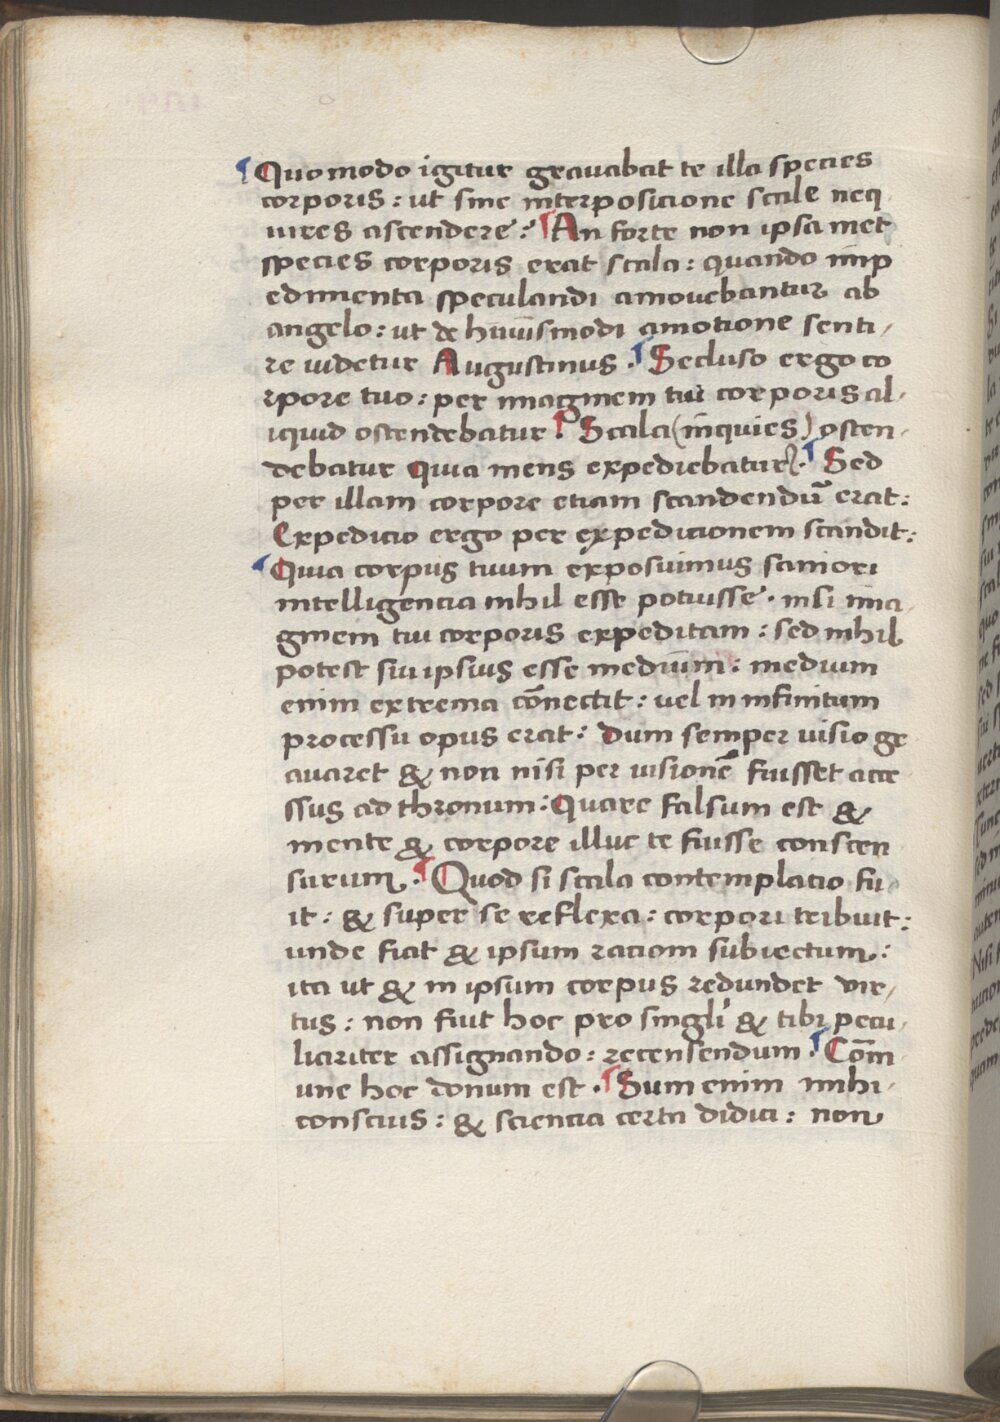 ¶ Quomodo igitur grauabat te illa species
corporis : ut sine interposicione scale neq
uires ascendere ? ¶ An forte non ipsa met
species corporis erat scala : quando imp
edimenta speculandi amouebantur ab
angelo : ut de huiusmodi amotione senti /
re uidetur Augustinus . ¶ Secluso ergo co
rpore tuo : per imaginem tui corporis al /
iquid ostendebatur ? ¶ Scala (inquies) osten /
debatur Quia mens expediebatur . ¶ Sed
per illam corpore etiam scandendū erat :
Expedicio ergo per expedicionem scandit :
¶ Quia corpus tuum exposuimus saniori
intelligencia nihil esse potuisse . nisi ima /
ginem tui corporis expeditam : sed nihil
potest sui ipsius esse medium : medium
enim extrema cōnectit : uel in infinitum
processu opus erat : Dum semper uisio gr
auaret & non nisi per uisionē fuisset acce
ssus ad thronum : Quare falsum est &
mente & corpore illuc te fuisse conscen
surum . ¶ Quod si scala contemplacio fu /
it : & super se reflexa : corpori tribuit :
unde fiat & ipsum raciom subiectum :
ita ut & in ipsum corpus redundet vir /
tus : non fuit hoc pro singli & tibi pecu /
liariter assignando : recensendum . ¶ Cōm
une hoc donum est . ¶ Sum enim mihi /
conscius : & sciencia certa didici : non